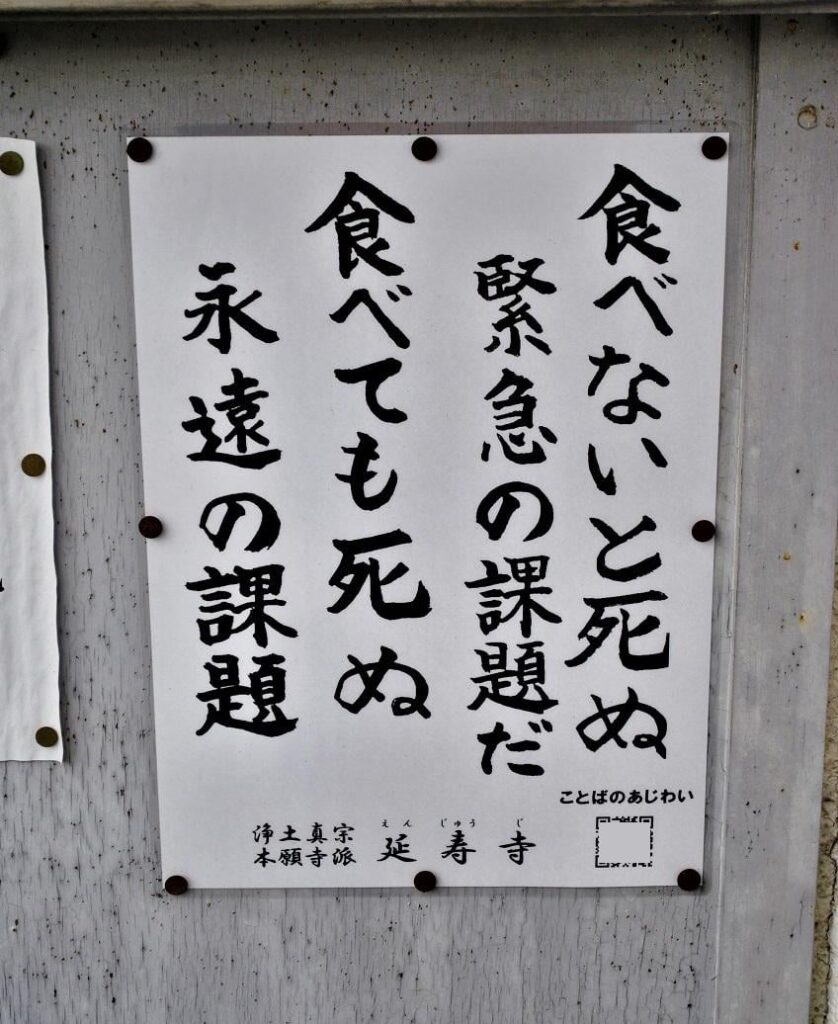 食べないと死ぬ
緊急の課題だ
食べても死ぬ
永遠の課題
ことばのあじわい
浄土真宗
本願寺派
えん じゅう じ
延寿寺